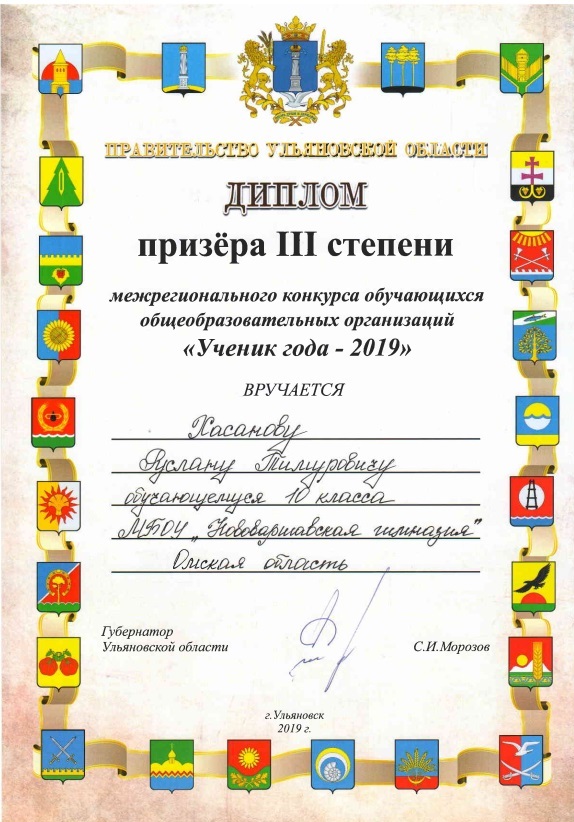 ПРАВИТЕЛЬСТВО УЛЬЯНОВСКОЙ ОБЛАСТИ
ДИПЛОМ
призёра III степени
межрегионального конкурса обучающихся
общеобразовательных организаций
«Ученик года - 2019»
ВРУЧАЕТСЯ
Хасанову
Руслану Тимуровичу
обучающемуся 10 класса
МБОУ „Нововаршавская гимназия"
Омская область
Губернатор
Ульяновской области
С.И.Морозов
г.Ульяновск
2019 г.